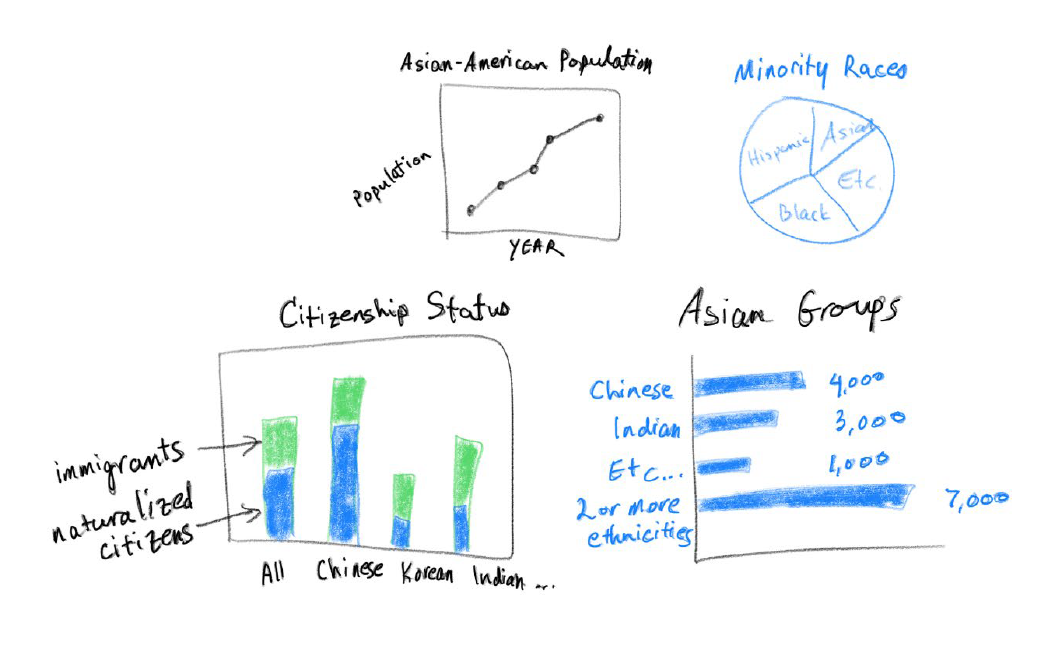 Asian-American Population
Population
YEAR
Minority Races
Hispanic
Asian
Etc.
Black
Citizenship Status
immigrants
naturalized
citizens
All Chinese Korean Indian ...
Asian Groups
Chinese 4,000
Indian 3,000
Etc... 1,000
2 or more
ethnicities
7,000